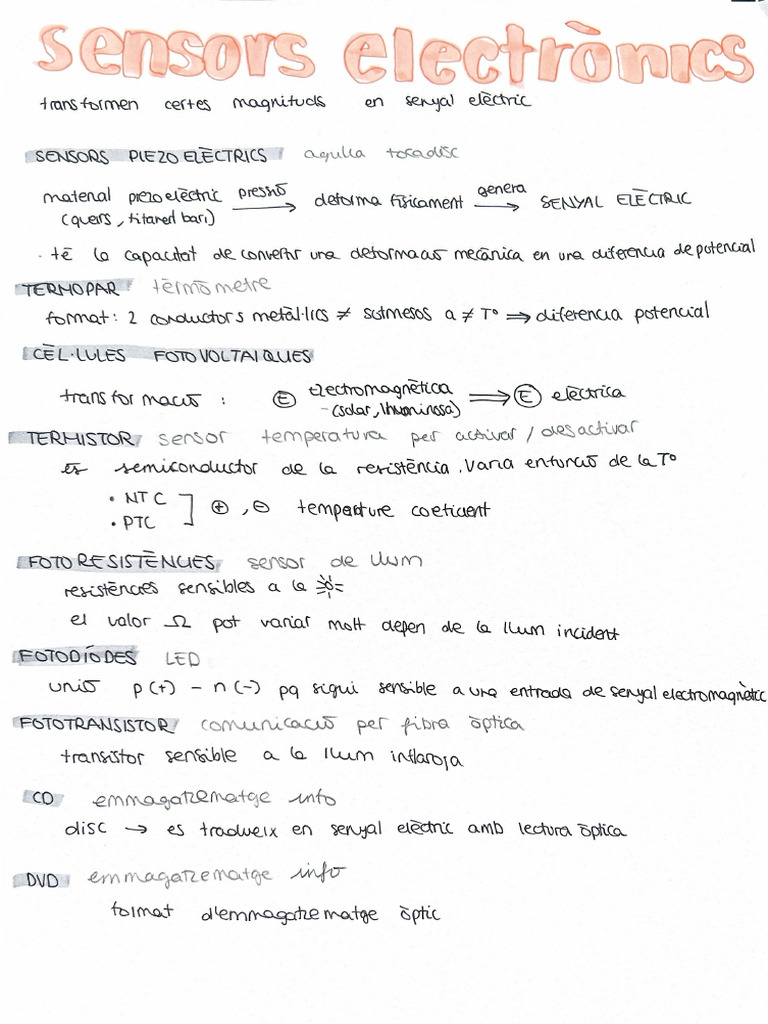 sensors electrònics
transformen certes magnituds en senyal elèctric
SENSORS PIEZOELÈCTRICS agulla tocadisc
material piezoelèctric pressió → deforma físicament genera → SENYAL ELÈCTRIC
(quars, titanat bari)
· té la capacitat de convertir una deformació mecànica en una diferencia de potencial
TERMOPAR termòmetre
format: 2 conductors metàl·lics ≠ sotmesos a ≠ Tº ⟹ diferencia potencial
CÈL·LULES FOTOVOLTAIQUES
transformació: Ⓔ electromagnètica ⟹ Ⓔ elèctrica
-(solar, lluminosa)
TERMISTOR sensor temperatura per activar / desactivar
es semiconductor de la resistència. Varia enfunció de la Tº
• NTC
• PTC
⊕, ⊖ temperature coeficient
FOTORESISTÈNCIES sensor de llum
resistències sensibles a la
el valor Ω pot variar molt depèn de la llum incident
FOTODÍODES LED
unió p(+) - n(-) pq sigui sensible a una entrada de senyal electromagnètic
FOTOTRANSISTOR comunicació per fibra òptica
transistor sensible a la llum infraroja
CD emmagatzematge info
disc → es tradueix en senyal elèctric amb lectura òptica
DVD emmagatzematge info
format d'emmagatzematge òptic